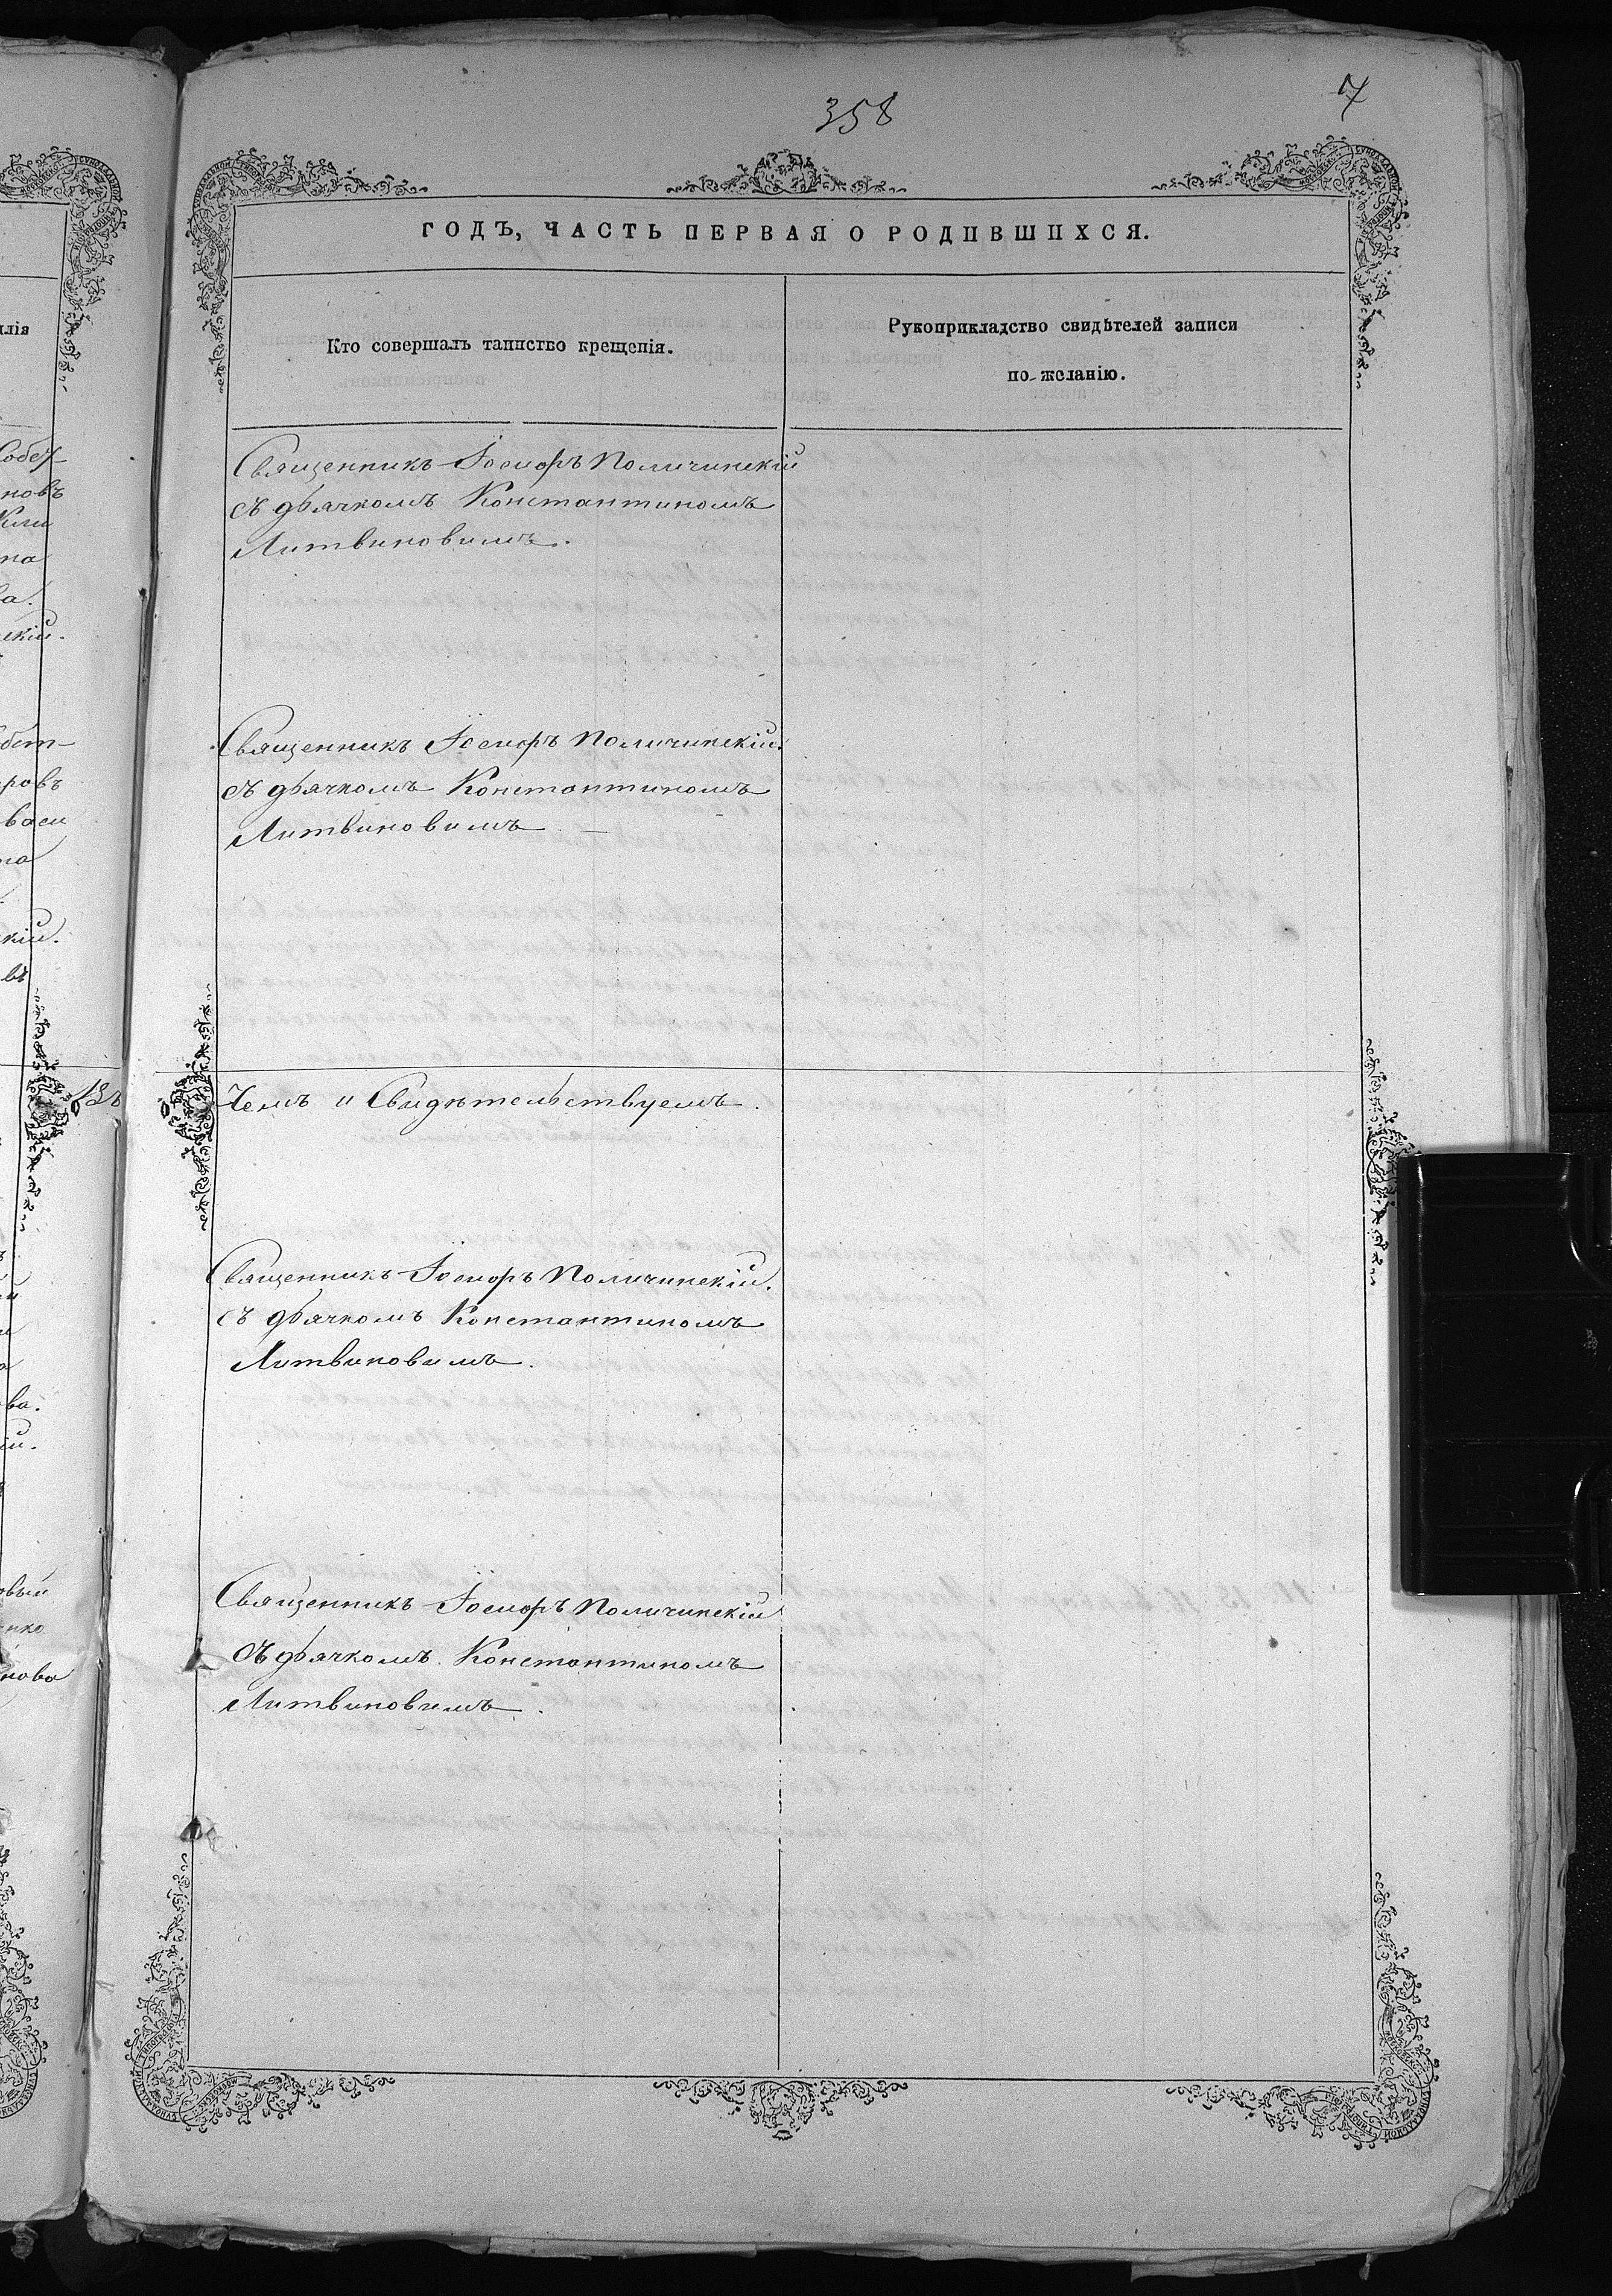 358
7
ГОДЪ, ЧАСТЬ ПЕРВАЯ О РОДИВШИХСЯ.
Кто совершалъ таинство крещенія.
Рукоприкладство свидѣтелей записи
по желанію.
Священникъ Іосифъ Поличинскій
съ дьячкомъ Константиномъ
Литвиновимъ.
Священникъ Іосифъ Поличинскій.
съ дьячкомъ Константиномъ
Литвиновимъ
Чемъ и Свидѣтельствуемъ.
Священникъ Іосифъ Поличинскій.
съ дьячкомъ Константиномъ
Литвиновимъ.
Священникъ Іосифъ Поличинскій
съ дьячкомъ Константиномъ
Литвиновимъ.